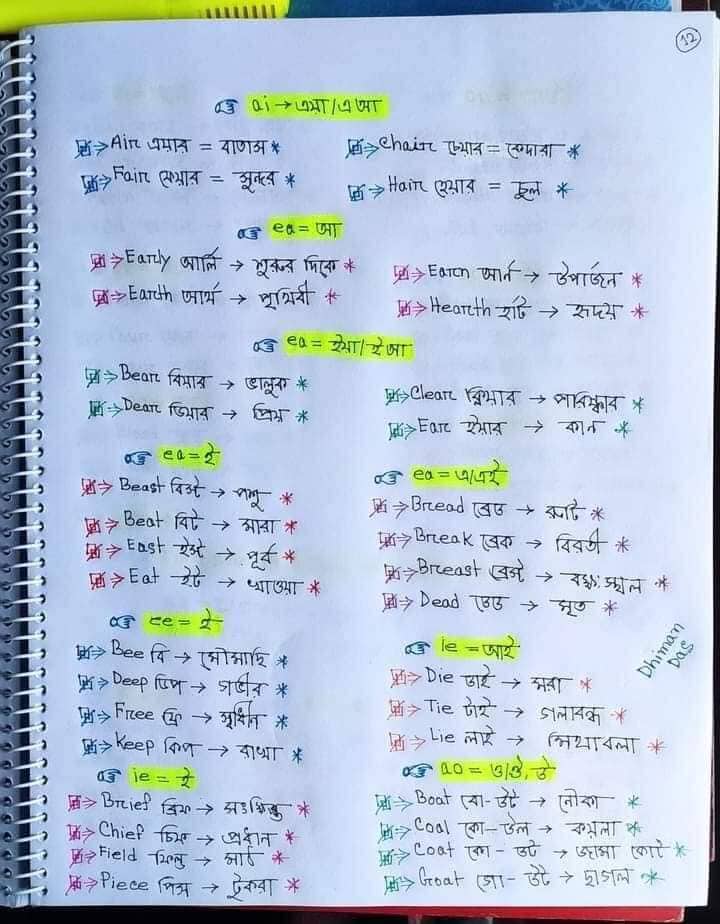 12
ai → এয়া/এ আ
Air এয়ার = বাতাস *
Chair চেয়ার = কেদারা *
Fair ফেয়ার = সুন্দর *
Hair হেয়ার = চুল *
ea = আ
Early আর্লি → শুরুর দিকে *
Earn আর্ন → উপার্জন *
Earth আর্থ → পৃথিবী *
Hearth হার্ট → হৃদয় *
ea = ইয়া/ই আ
Bear বিয়ার → ভালুক *
Clear ক্লিয়ার → পরিষ্কার *
Dear ডিয়ার → প্রিয় *
Ear ইয়ার → কান *
ea = ই
Beast বিস্ট → পশু *
Beat বিট → মারা *
East ইস্ট → পূর্ব *
Eat ইট → খাওয়া *
ea = এ/এই
Bread ব্রেড → রুটি *
Break ব্রেক → বিরতী *
Breast ব্রেস্ট → বক্ষঃস্থল *
Dead ডেড → মৃত *
ee = ই
Bee বি → মৌমাছি *
Deep ডিপ → গভীর *
Free ফ্রি → স্বাধীন *
Keep কিপ → রাখা *
ie = আই
Die ডাই → মরা *
Tie টাই → গলাবন্ধ *
Lie লাই → মিথ্যাবলা *
Dhiman
Das
ie = ই
Brief ব্রিফ → সংক্ষিপ্ত *
Chief চিফ → প্রধান *
Field ফিল্ড → মাঠ *
Piece পিস → টুকরা *
ao = ও/উ, উ
Boat বো-উট → নৌকা *
Coal কো-উল → কয়লা *
Coat কো-উট → জামা কোট *
Goat গো-উট → ছাগল *